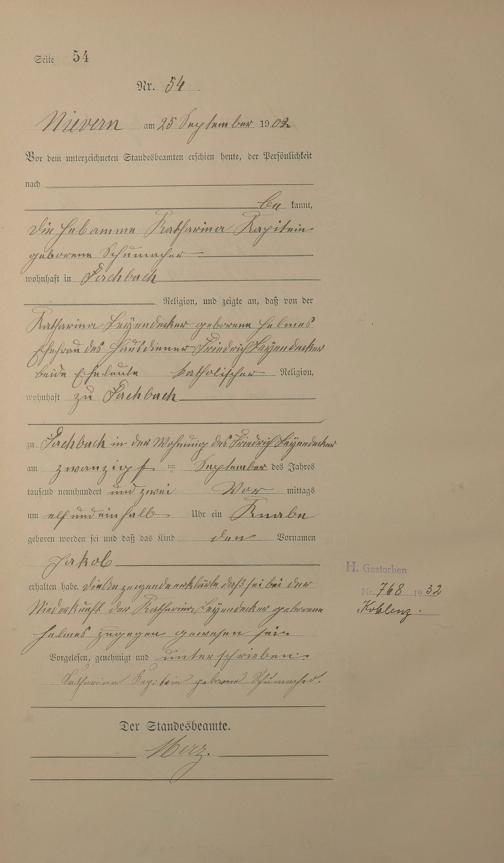 Seite 54
Nr. 54
Nievern am 25 September 1902
Vor dem unterzeichneten Standesbeamten erschien heute, der Persönlichkeit
nach
be kannt,
die Hebamme Katharina Kapitein
geborene Schumacher
wohnhaft in Fachbach
Religion, und zeigte an, daß von der
Katharina Leyendecker geborene Helmes
Ehefrau des Hausdiener Friedrich Leyendecker
beide Eheleute katholischer Religion,
wohnhaft zu Fachbach
zu Fachbach in der Wohnung des Friedrich Leyendecker
am zwanzigst ten September des Jahres
tausend neunhundert und zwei Vor mittags
um elf und einhalb Uhr ein Knabe
geboren worden sei und daß das Kind den Vornamen
Jakob
erhalten habe. die Anzeigende erklärte daß sei bei der
Niederkunft der Katharina Leyendecker geborene
Helmes zugegen gewesen sei.
Vorgelesen, genehmigt und unterschrieben.
Katharina Kapitein geborene Schumacher.
Der Standesbeamte.
Merz.
H. Gestorben
Nr. 768 1932
Koblenz.